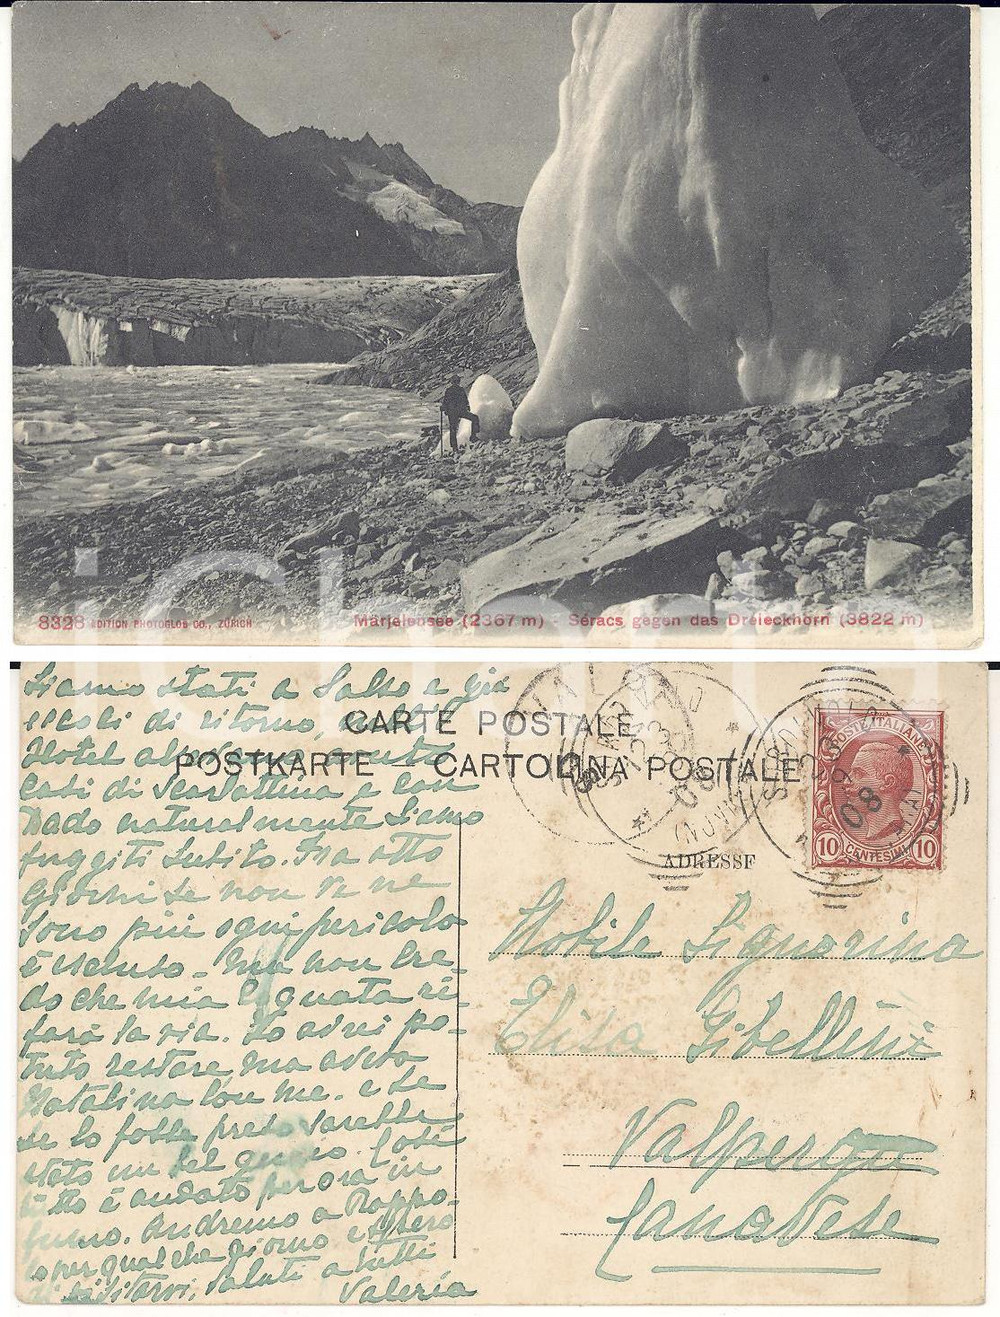 8328 EDITION PHOTOGLOB CO., ZÜRICH
Märjelensee (2367 m) - Séracs gegen das Dreieckhorn (3822 m)
iChar
CARTE POSTALE
POSTKARTE — CARTOLINA POSTALE
ADRESSE
POSTE ITALIANE
10 CENTESIMI 10
08
08
Siamo stati a Salso e già
di ritorno, nello
Hotel
casi di Scarlattina e con
Dado naturalmente siamo
fuggiti subito. Fra otto
Giorni se non ve ne
sono più ogni pericolo
è - ma non cre-
do che mia cognata ri-
farà la via. Io avrei po-
tuto restare ma avevo
Natalina con me. e se
se la fosse presa sarebbe
stato un bel guaio. Così
tutto è andato per ora in
fumo. Andremo a Rappo-
lo per qualche giorno e spero
di visitarvi, Saluti a tutti
Valeria
Nobile Signorina
Elisa Gibellini
Valperga
Canavese